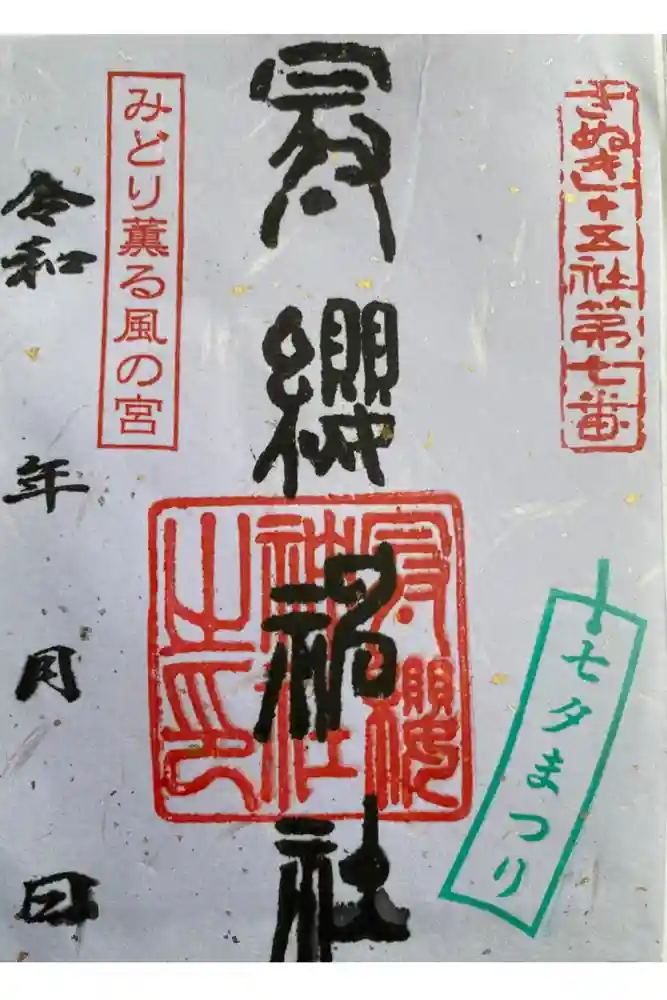 さぬき十五社第七番
七夕まつり
冠纓神社
冠纓神社之印
みどり薫る風の宮
令和 年 月 日